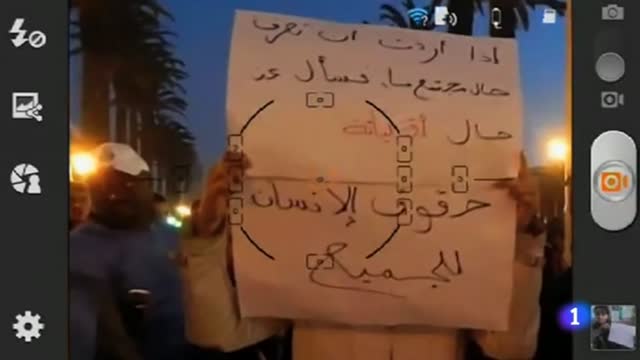 اذا اردت ان تعرف
حال مجتمع ما، فسأل عن
حال أقلياته
حقوق الإنسان
للجميع
1